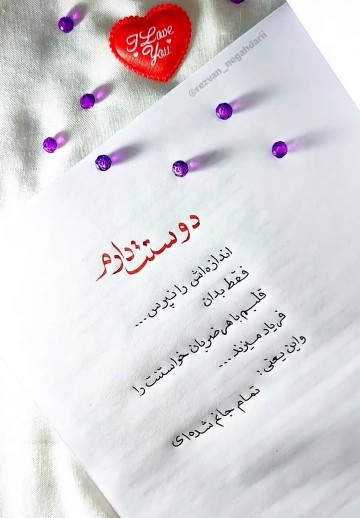 I Love
You
@rezvan_negahdarii
دوستت دارم
اندازه‌اش را نپرس...
فقط بدان
قلبم با هر ضربان خواستنت را
فریاد میزند...
و این یعنی:
تمام جانم شده‌ای